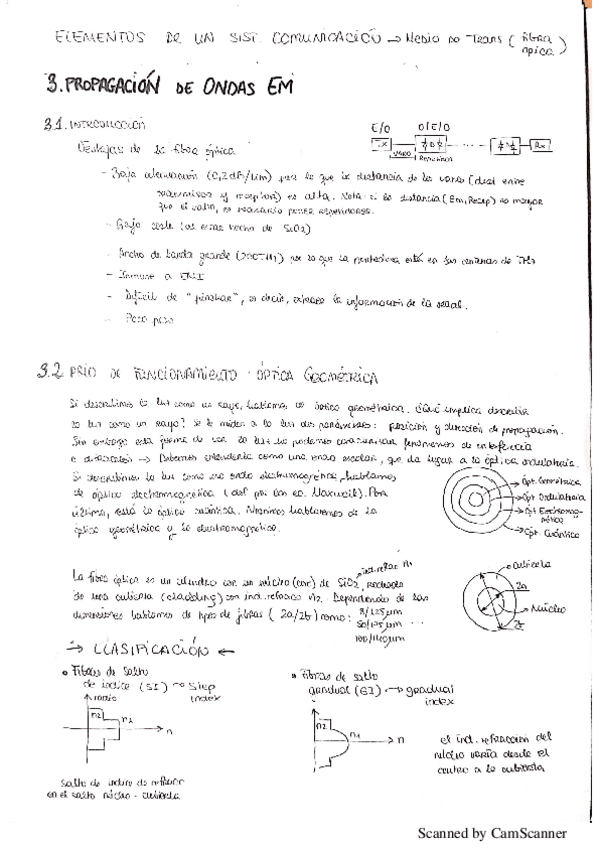 ELEMENTOS DE UN SIST. COMUNICACIÓN → Medio de Trans (fibra óptica)
3. PROPAGACIÓN DE ONDAS EM
3.1. INTRODUCCIÓN
E/O O/E/O
Ventajas de la fibra óptica
Tx Rx
VANO
- Baja atenuación (0,2dB/km) por lo que la distancia de los vanos (dist entre
y receptor) es alta. Nota: si la distancia (Em, Recep) es mayor
que el vano, es necesario poner repetidores.
- Bajo coste (al estar hecho de SiO2)
- Ancho de banda grande (200THz) por lo que la portadora está en las centenas de THz
- Inmune a EMI
- Difícil de "pinchar", es decir, extraer la información de la señal.
- Poco peso
3.2 PPIO DE FUNCIONAMIENTO. ÓPTICA GEOMÉTRICA
Si describimos la luz como un rayo, hablamos de óptica geométrica. ¿Qué implica describir
la luz como un rayo? se le miden a la luz dos parámetros: posición y dirección de propagación.
Sin embargo esta forma de ver la luz no podemos caracterizar fenómenos de interferencia
o difracción → Debemos entenderla como una onda escalar, que da lugar a la óptica ondulatoria.
Si describimos la luz como una onda electromagnética, hablamos
de óptica electromagnética (def por las ec. Maxwell). Por
último, está la óptica cuántica. Nosotros hablaremos de la
óptica geométrica y la electromagnética.
Ópt. Geométrica
Ópt. Ondulatoria
Ópt. Electromagnética
Ópt. Cuántica
ind. refrac n1
La fibra óptica es un cilindro con un núcleo (core) de SiO2, rodeado
de una cubierta (cladding) con ind. refracc n2. Dependiendo de las
dimensiones hablamos de tipos de fibras (2a/2b) como: 8/125 µm
50/125 µm
100/140 µm
cubierta
2a
Núcleo
2b
→ CLASIFICACIÓN ←
• Fibras de salto
de índice (SI) → Step
index
radio
n2
n1
n
Salto de índice de refracc
en el salto núcleo - cubierta
• Fibras de salto
gradual (GI) → gradual
index
n2
n1
n
el ind. refracción del
núcleo varía desde el
centro a la cubierta
Scanned by CamScanner